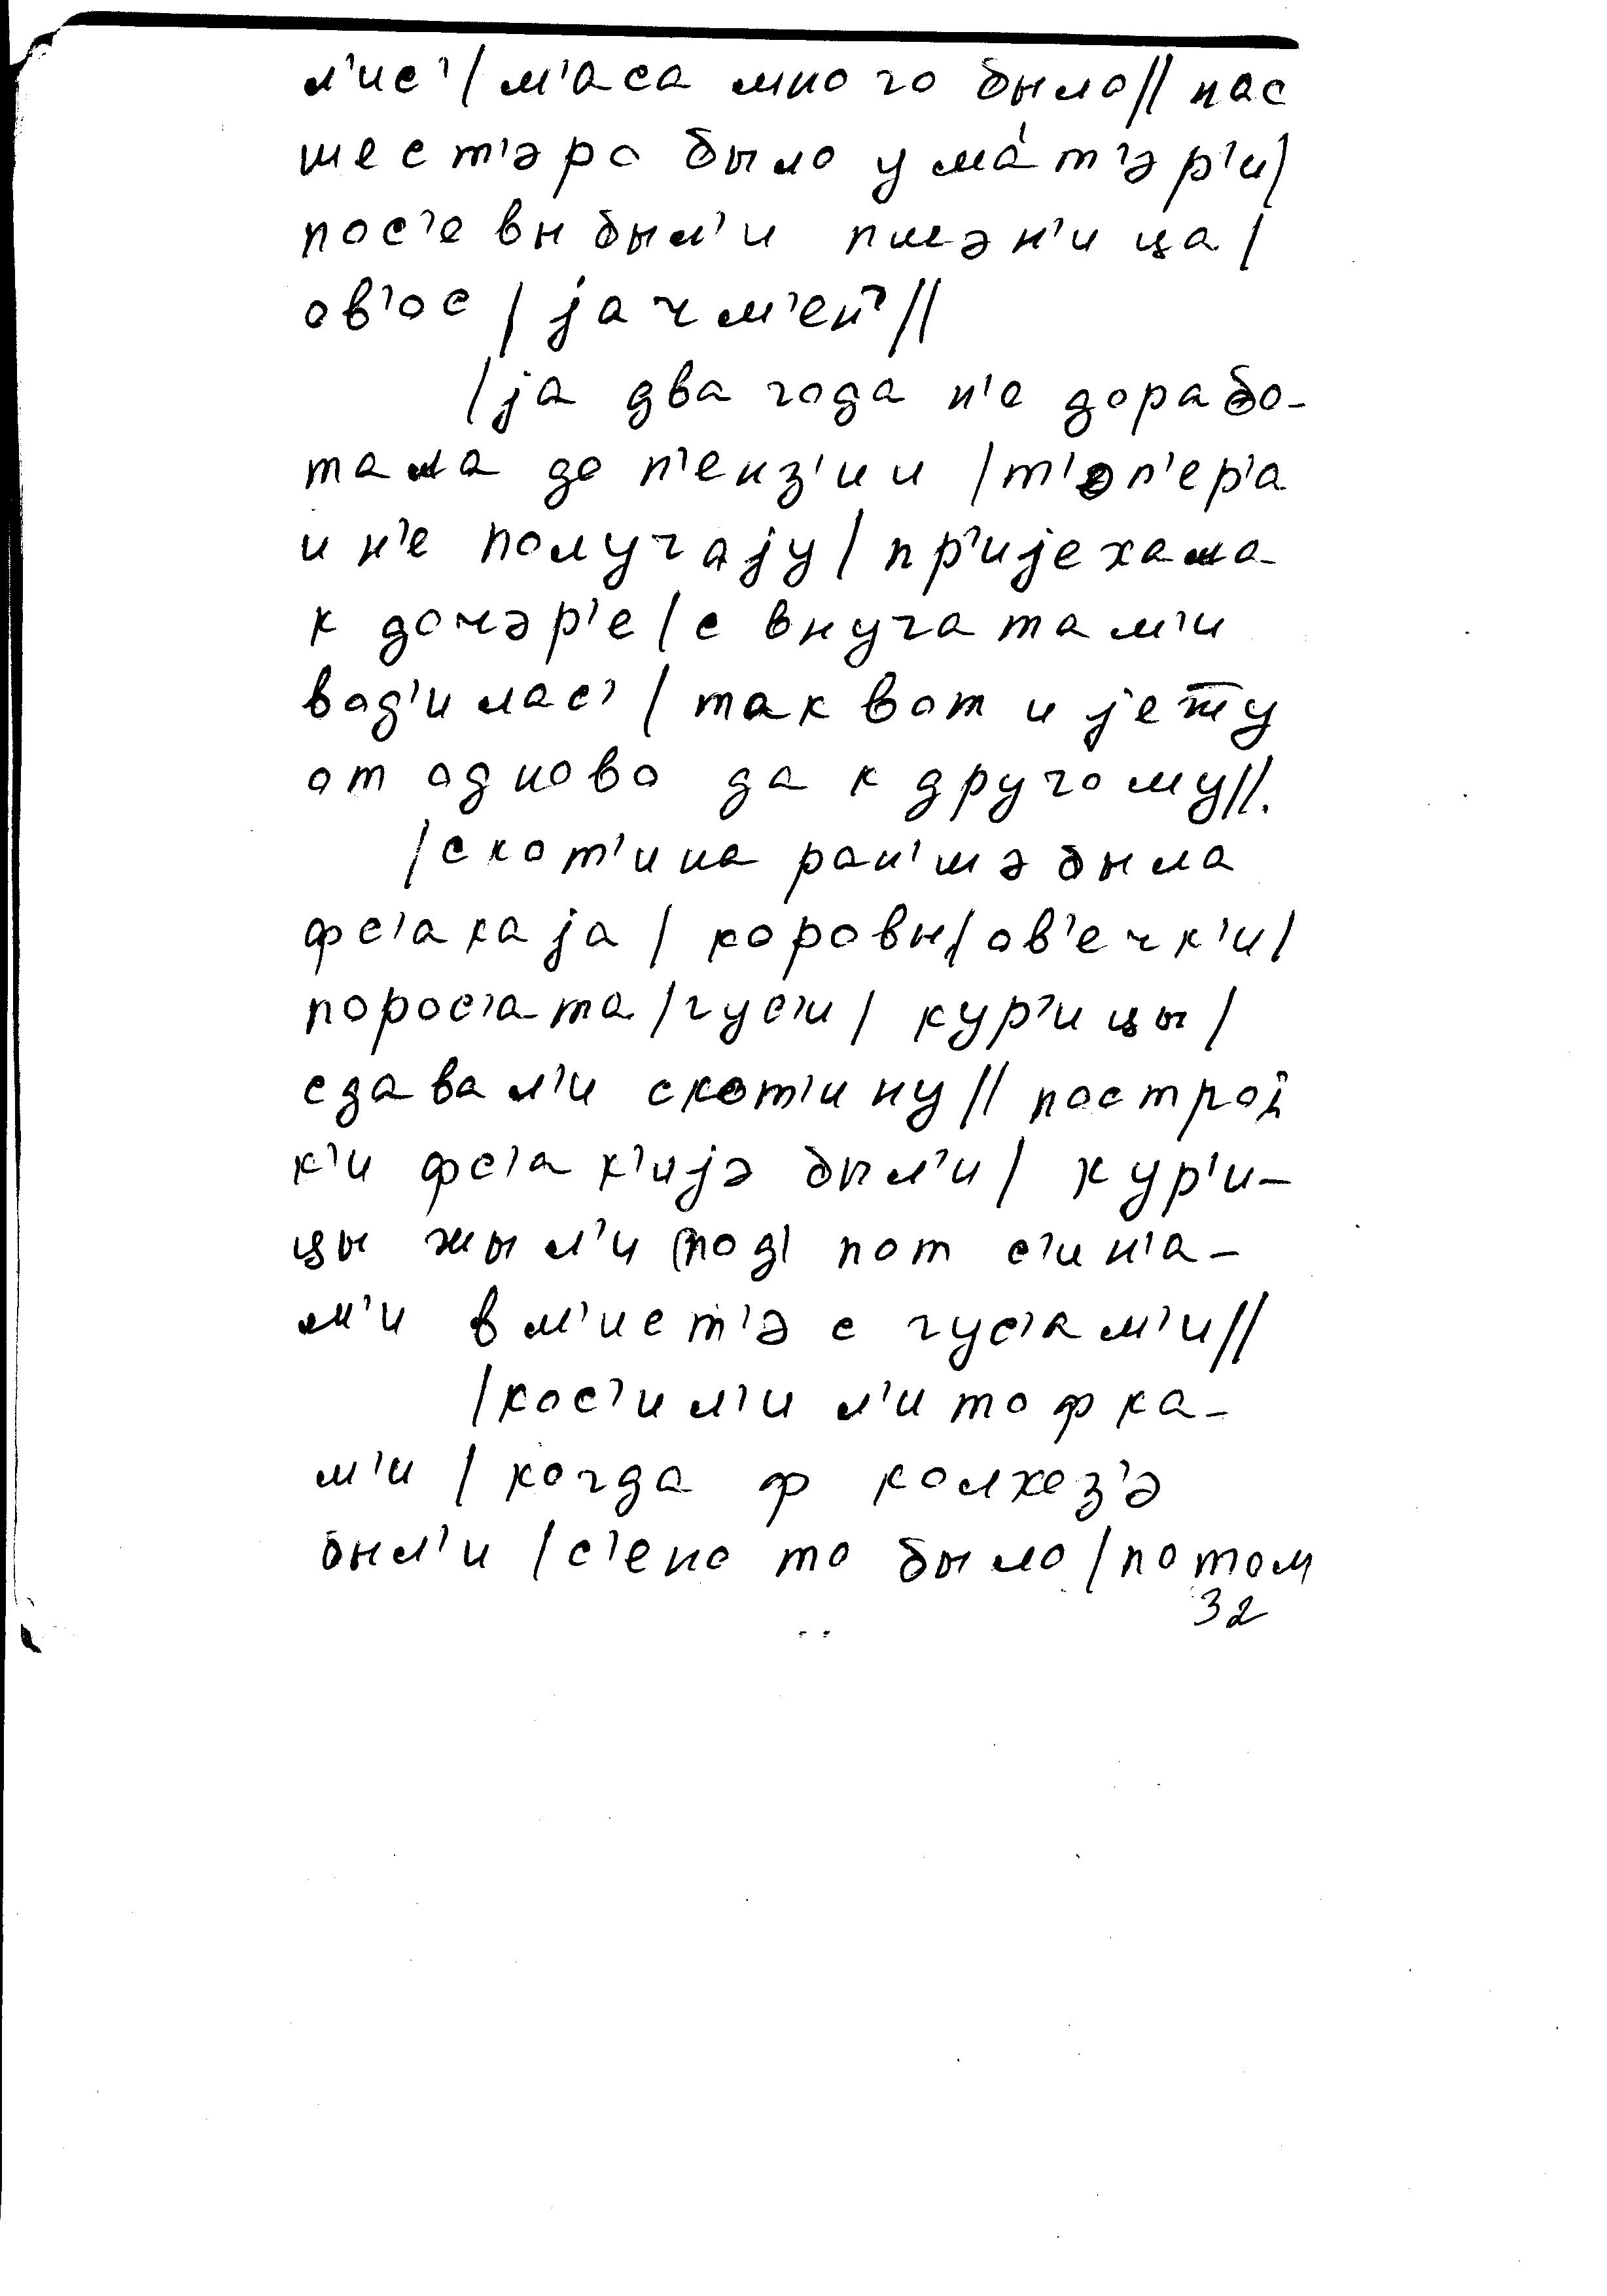 л'ис' / м'аса много было // нас
шест'əро было у мáт'əр'и /
пос'евы был'и пшəн'ица /
ов'ос / jачм'ен' //
/ jа два года н'е дорабо-
тала до п'енз'ии / т'еп'ер'а
и н'е получаjу / пр'иjехала
к дочəр'е / с внучатам'и
вод'илас' / так вот и jежу
от одново да к другому //.
/ скот'ина ран'шə была
фс'акаjа / коровы / ов'ечк'и /
порос'ата / гус'и / кур'ицы /
сдавал'и скот'ину // построj
к'и фс'ак'иjə был'и / кур'и-
цы жыл'и (под) пот с'ин'а-
м'и вм'ист'ə с гус'ам'и //
/ кос'ил'и л'итофка-
м'и / когда ф колхоз'ə
был'и / с'ено то было / потом
32